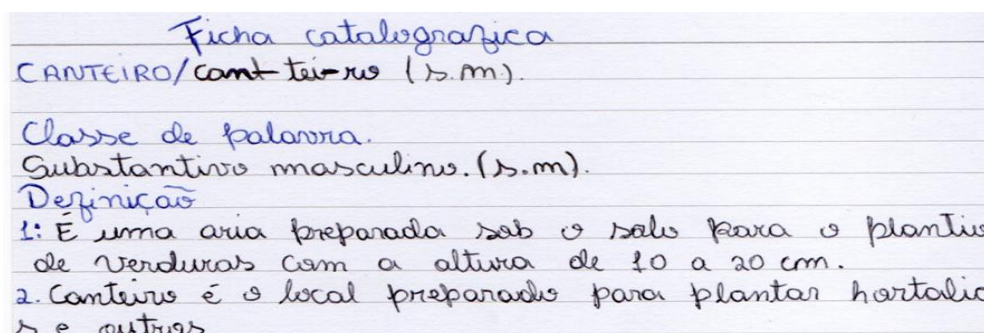 Ficha catalografica
CANTEIRO/cant-tei-ro (s.m).
Classe de palavra.
Substantivo masculino.(s.m).
Definição
1: É uma aria preparada sob o solo para o plantio
de verduras com a altura de 10 a 20 cm.
2. Canteiro é o local preparado para plantar hortaliç
s e outras